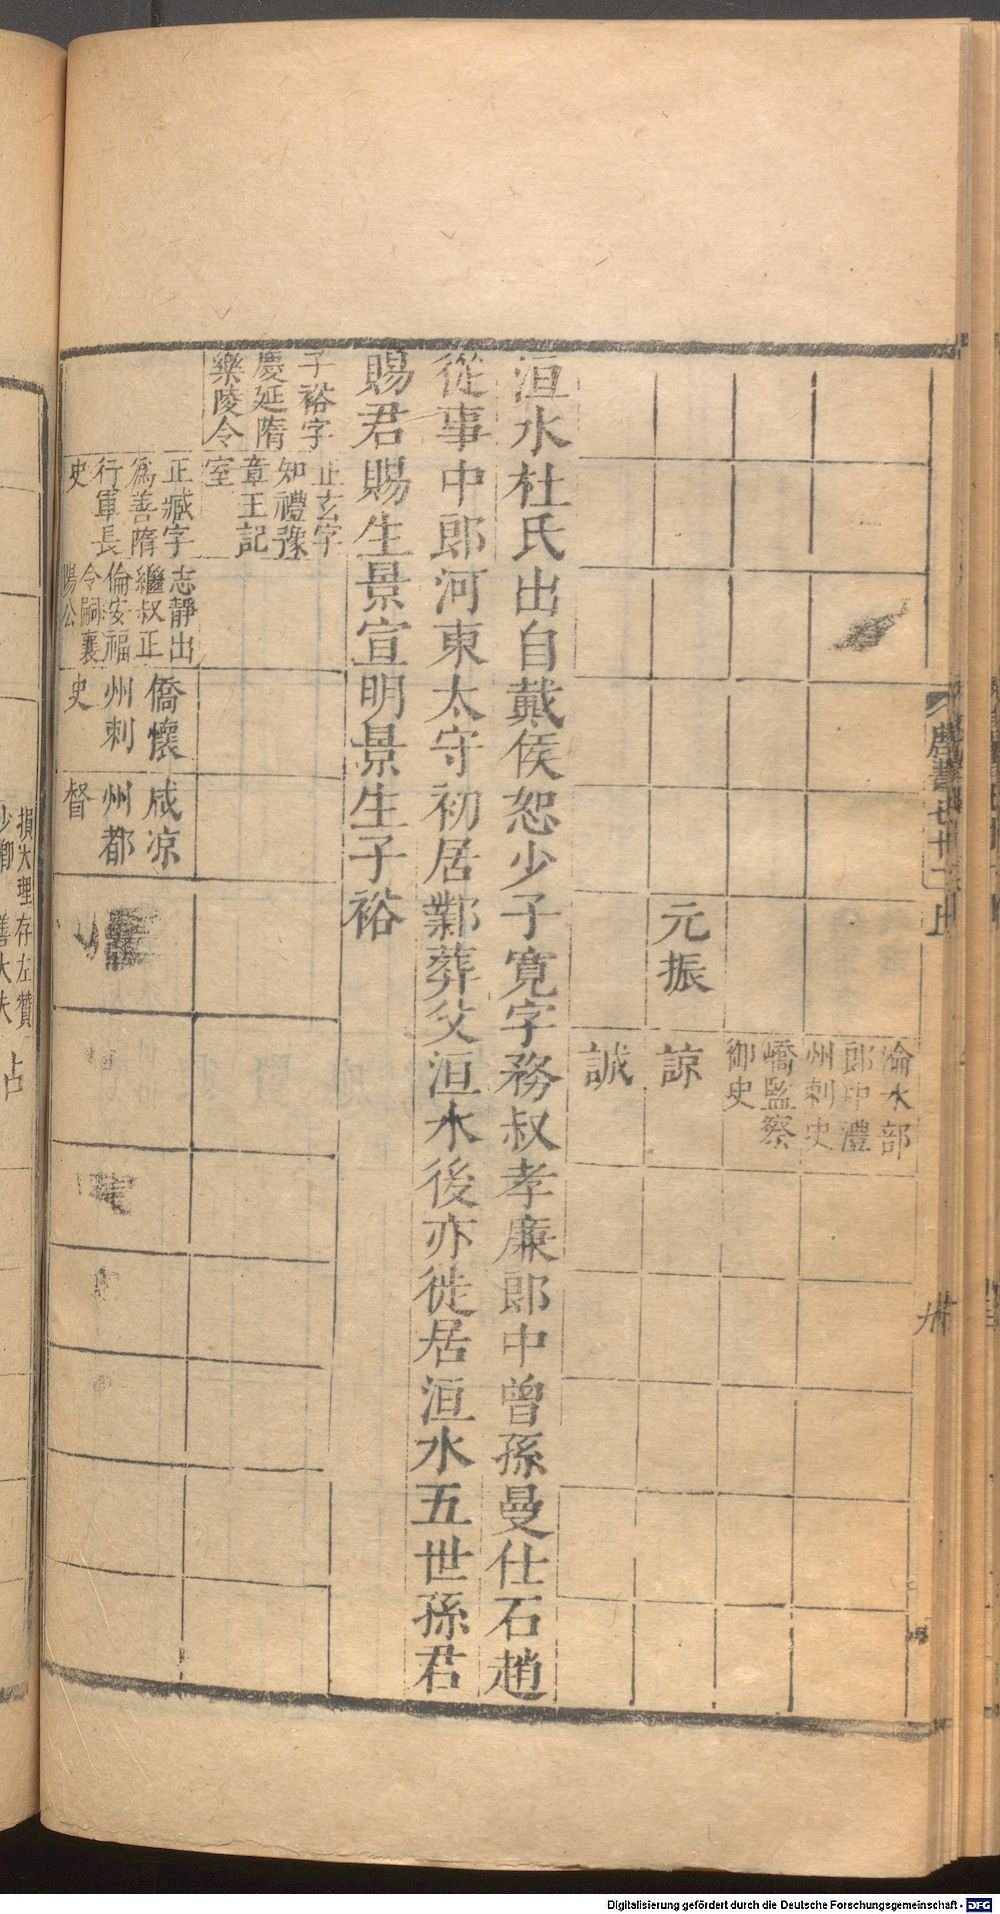 唐書七十二上
卅
淪水部
郎中澧
州刺史
嶠監察
御史
元振
諒
誠
洹水杜氏出自戴侯恕少子寬字務叔孝廉郎中曾孫曼仕石趙
從事中郎河東太守初居鄴葬父洹水後亦徙居洹水五世孫君
賜君賜生景宣明景生子裕
子裕字
慶延隋
樂陵令
正玄字
知禮豫
章王記
室
正臧字
爲善隋
行軍長
史
志靜出
繼叔正
倫安福
令嗣襄
陽公
僑懷
州刺
史
咸凉
州都
督
損大理
少卿
存左贊
善大夫
Digitalisierung gefördert durch die Deutsche Forschungsgemeinschaft - DFG